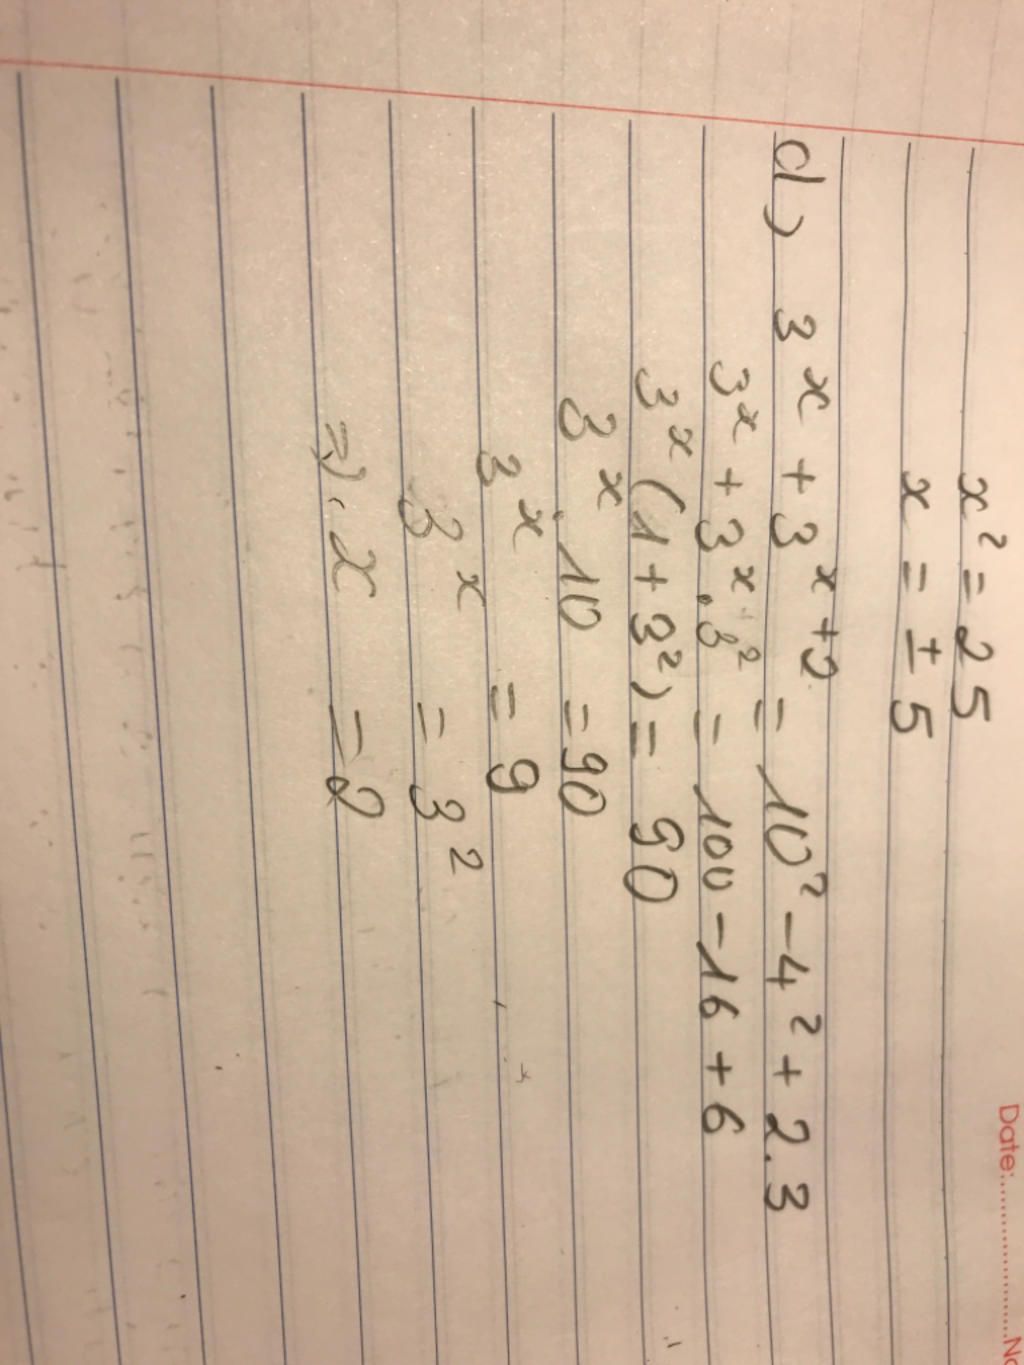 Date:....................No
x² = 25
x = ± 5
d) 3^x + 3^x+2 = 10² - 4² + 2.3
3^x + 3^x . 3² = 100 - 16 + 6
3^x (1 + 3²) = 90
3^x . 10 = 90
3^x = 9
3^x = 3²
=> x = 2